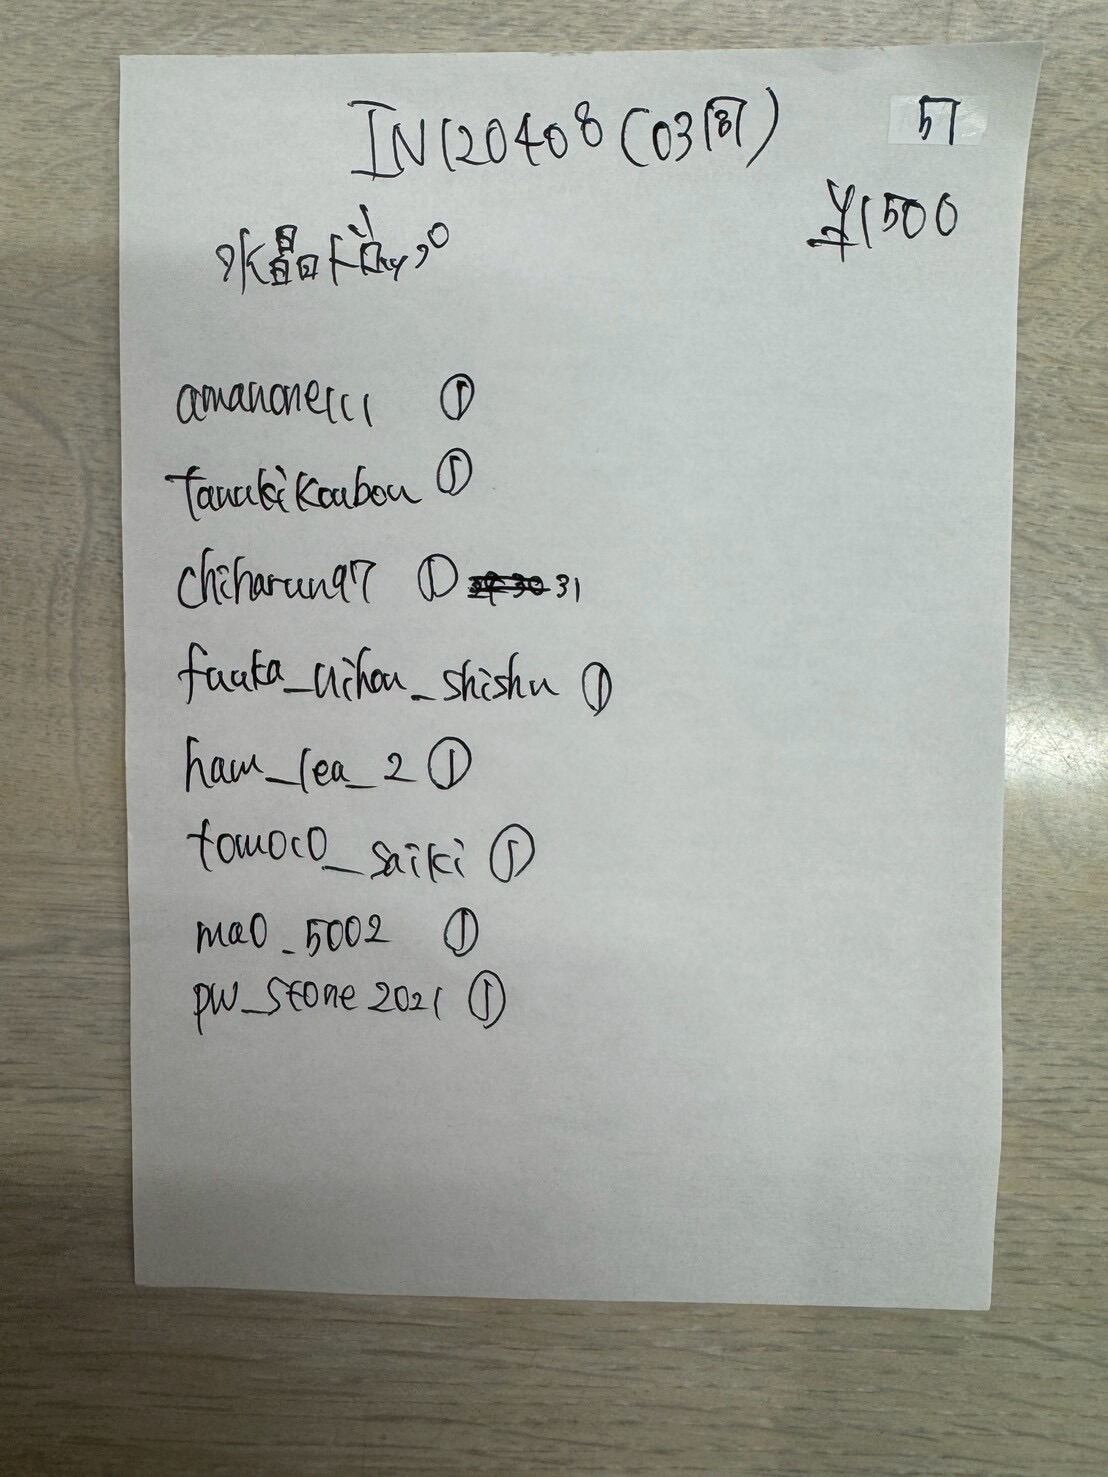 IN120408 (03周)
57
¥1500
水晶
amanone111 ①
tanukikoubou ①
chiharun97 ① 31
fuuka_nihon_shishu ①
ham_lea_2 ①
tomoco_saiki ①
mao_5002 ①
pw_stone2021 ①